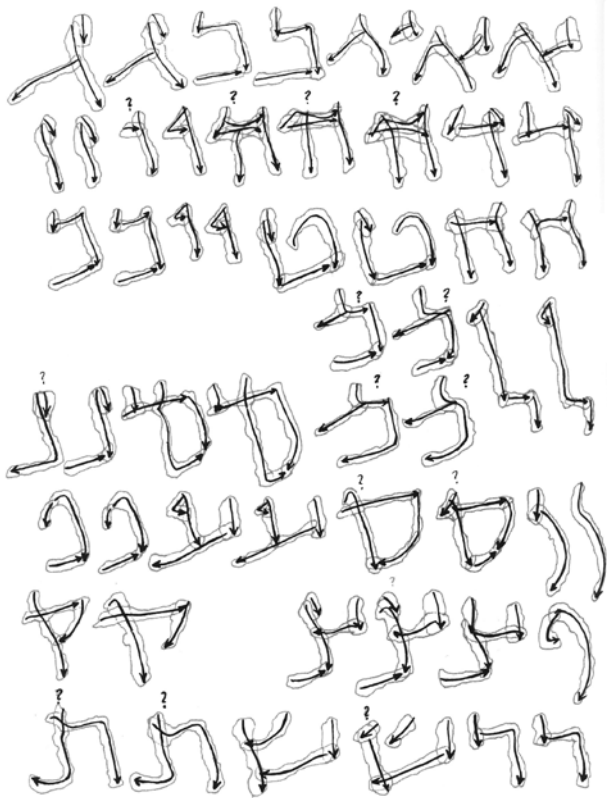 א א א ב ב ג ג
ד ד ה? ה? ה? ו ו? ז ז
ח ח ט ט י י כ כ
ל ל מ? מ?
מ? מ? ם ם נ נ?
ן ן ס? ס? ע ע פ פ
ף צ צ? צ ק ק
ר ר ש? ש ת? ת?